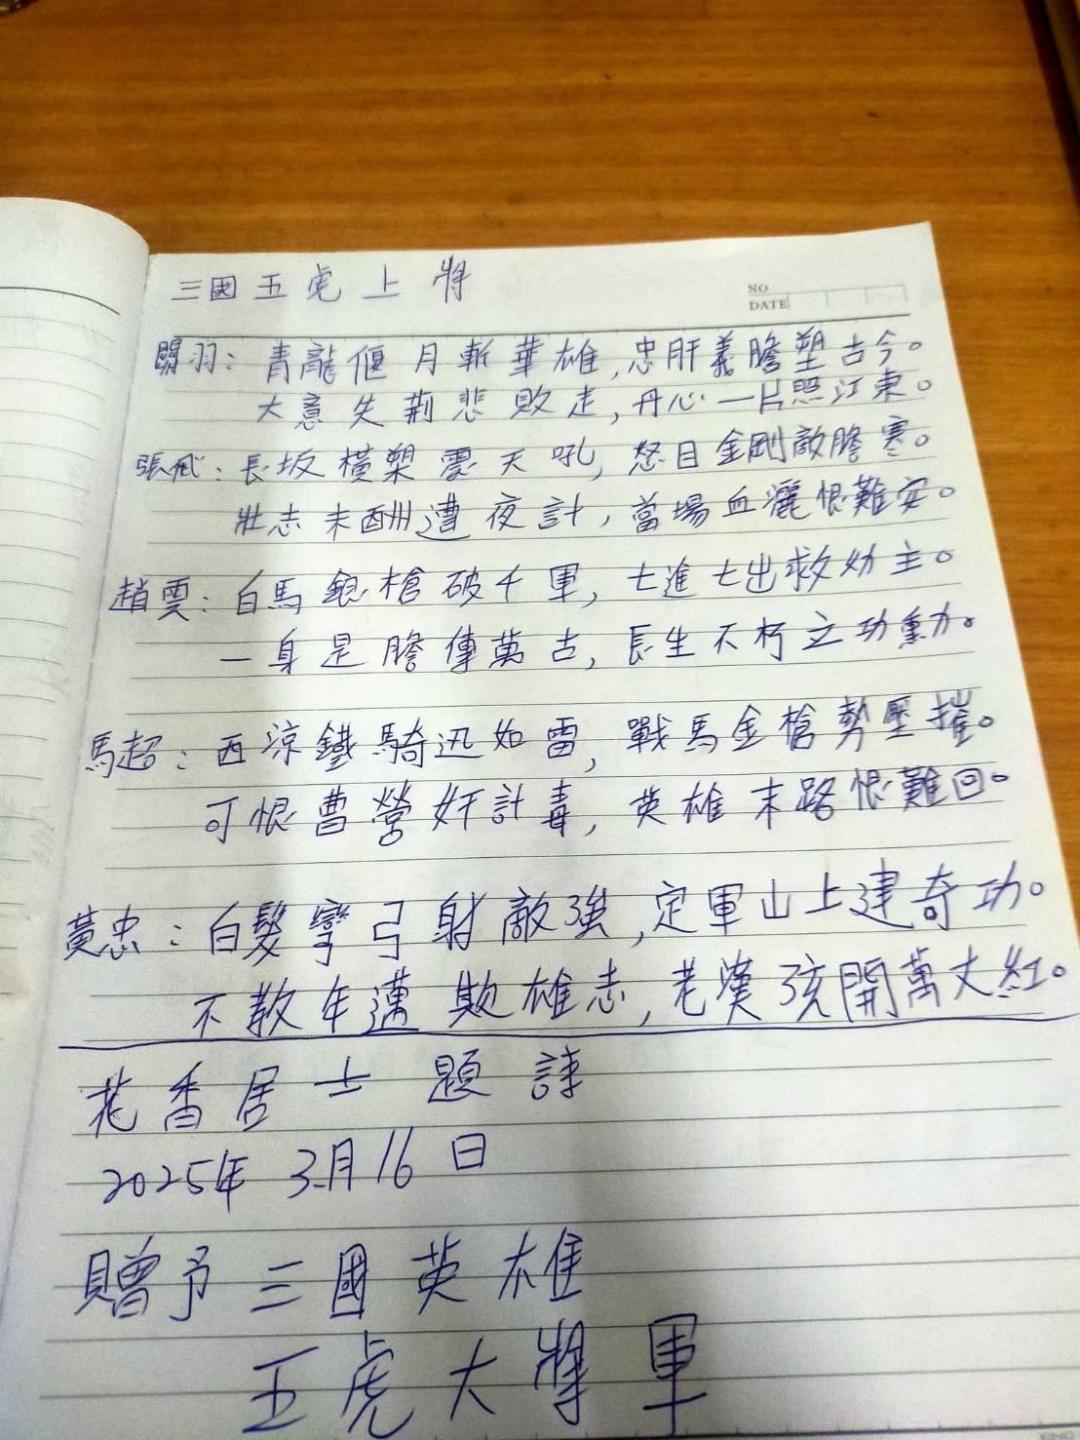 三國五虎上將
NO
DATE
關羽：青龍偃月斬華雄，忠肝義膽塑古今。
大意失荊悲敗走，丹心一片照江東。
張飛：長坂橫槊震天吼，怒目金剛敵膽寒。
壯志未酬遭夜計，當場血灑恨難安。
趙雲：白馬銀槍破千軍，七進七出救幼主。
一身是膽傳萬古，長生不朽立功勳。
馬超：西涼鐵騎迅如雷，戰馬金槍勢壓摧。
可恨曹營奸計毒，英雄末路恨難回。
黃忠：白髮彎弓射敵強，定軍山上建奇功。
不教年邁欺雄志，老漢弦開萬丈紅。
花香居士題詩
2025年3月16日
贈予三國英雄
五虎大將軍